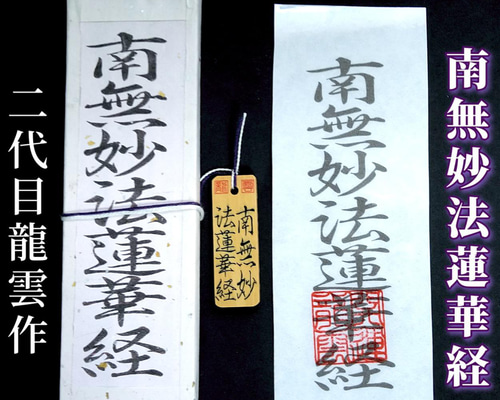 南無妙法蓮華経
南無妙法蓮華経
南無妙
法蓮華経
南無妙法蓮華経
二代目龍雲作